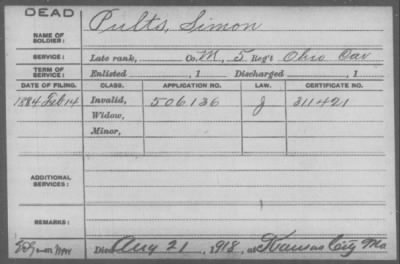 DEAD
NAME OF SOLDIER: Pults, Simon
SERVICE: Late rank, Co. M, 5 Reg't Ohio Cav
TERM OF SERVICE: Enlisted , 1 Discharged , 1
DATE OF FILING. CLASS. APPLICATION NO. LAW. CERTIFICATE NO.
1884 Feb 14 Invalid, 506136 J 311421
Widow,
Minor,
ADDITIONAL SERVICES:
REMARKS:
Died Aug 21, 1918, at Kansas City Mo